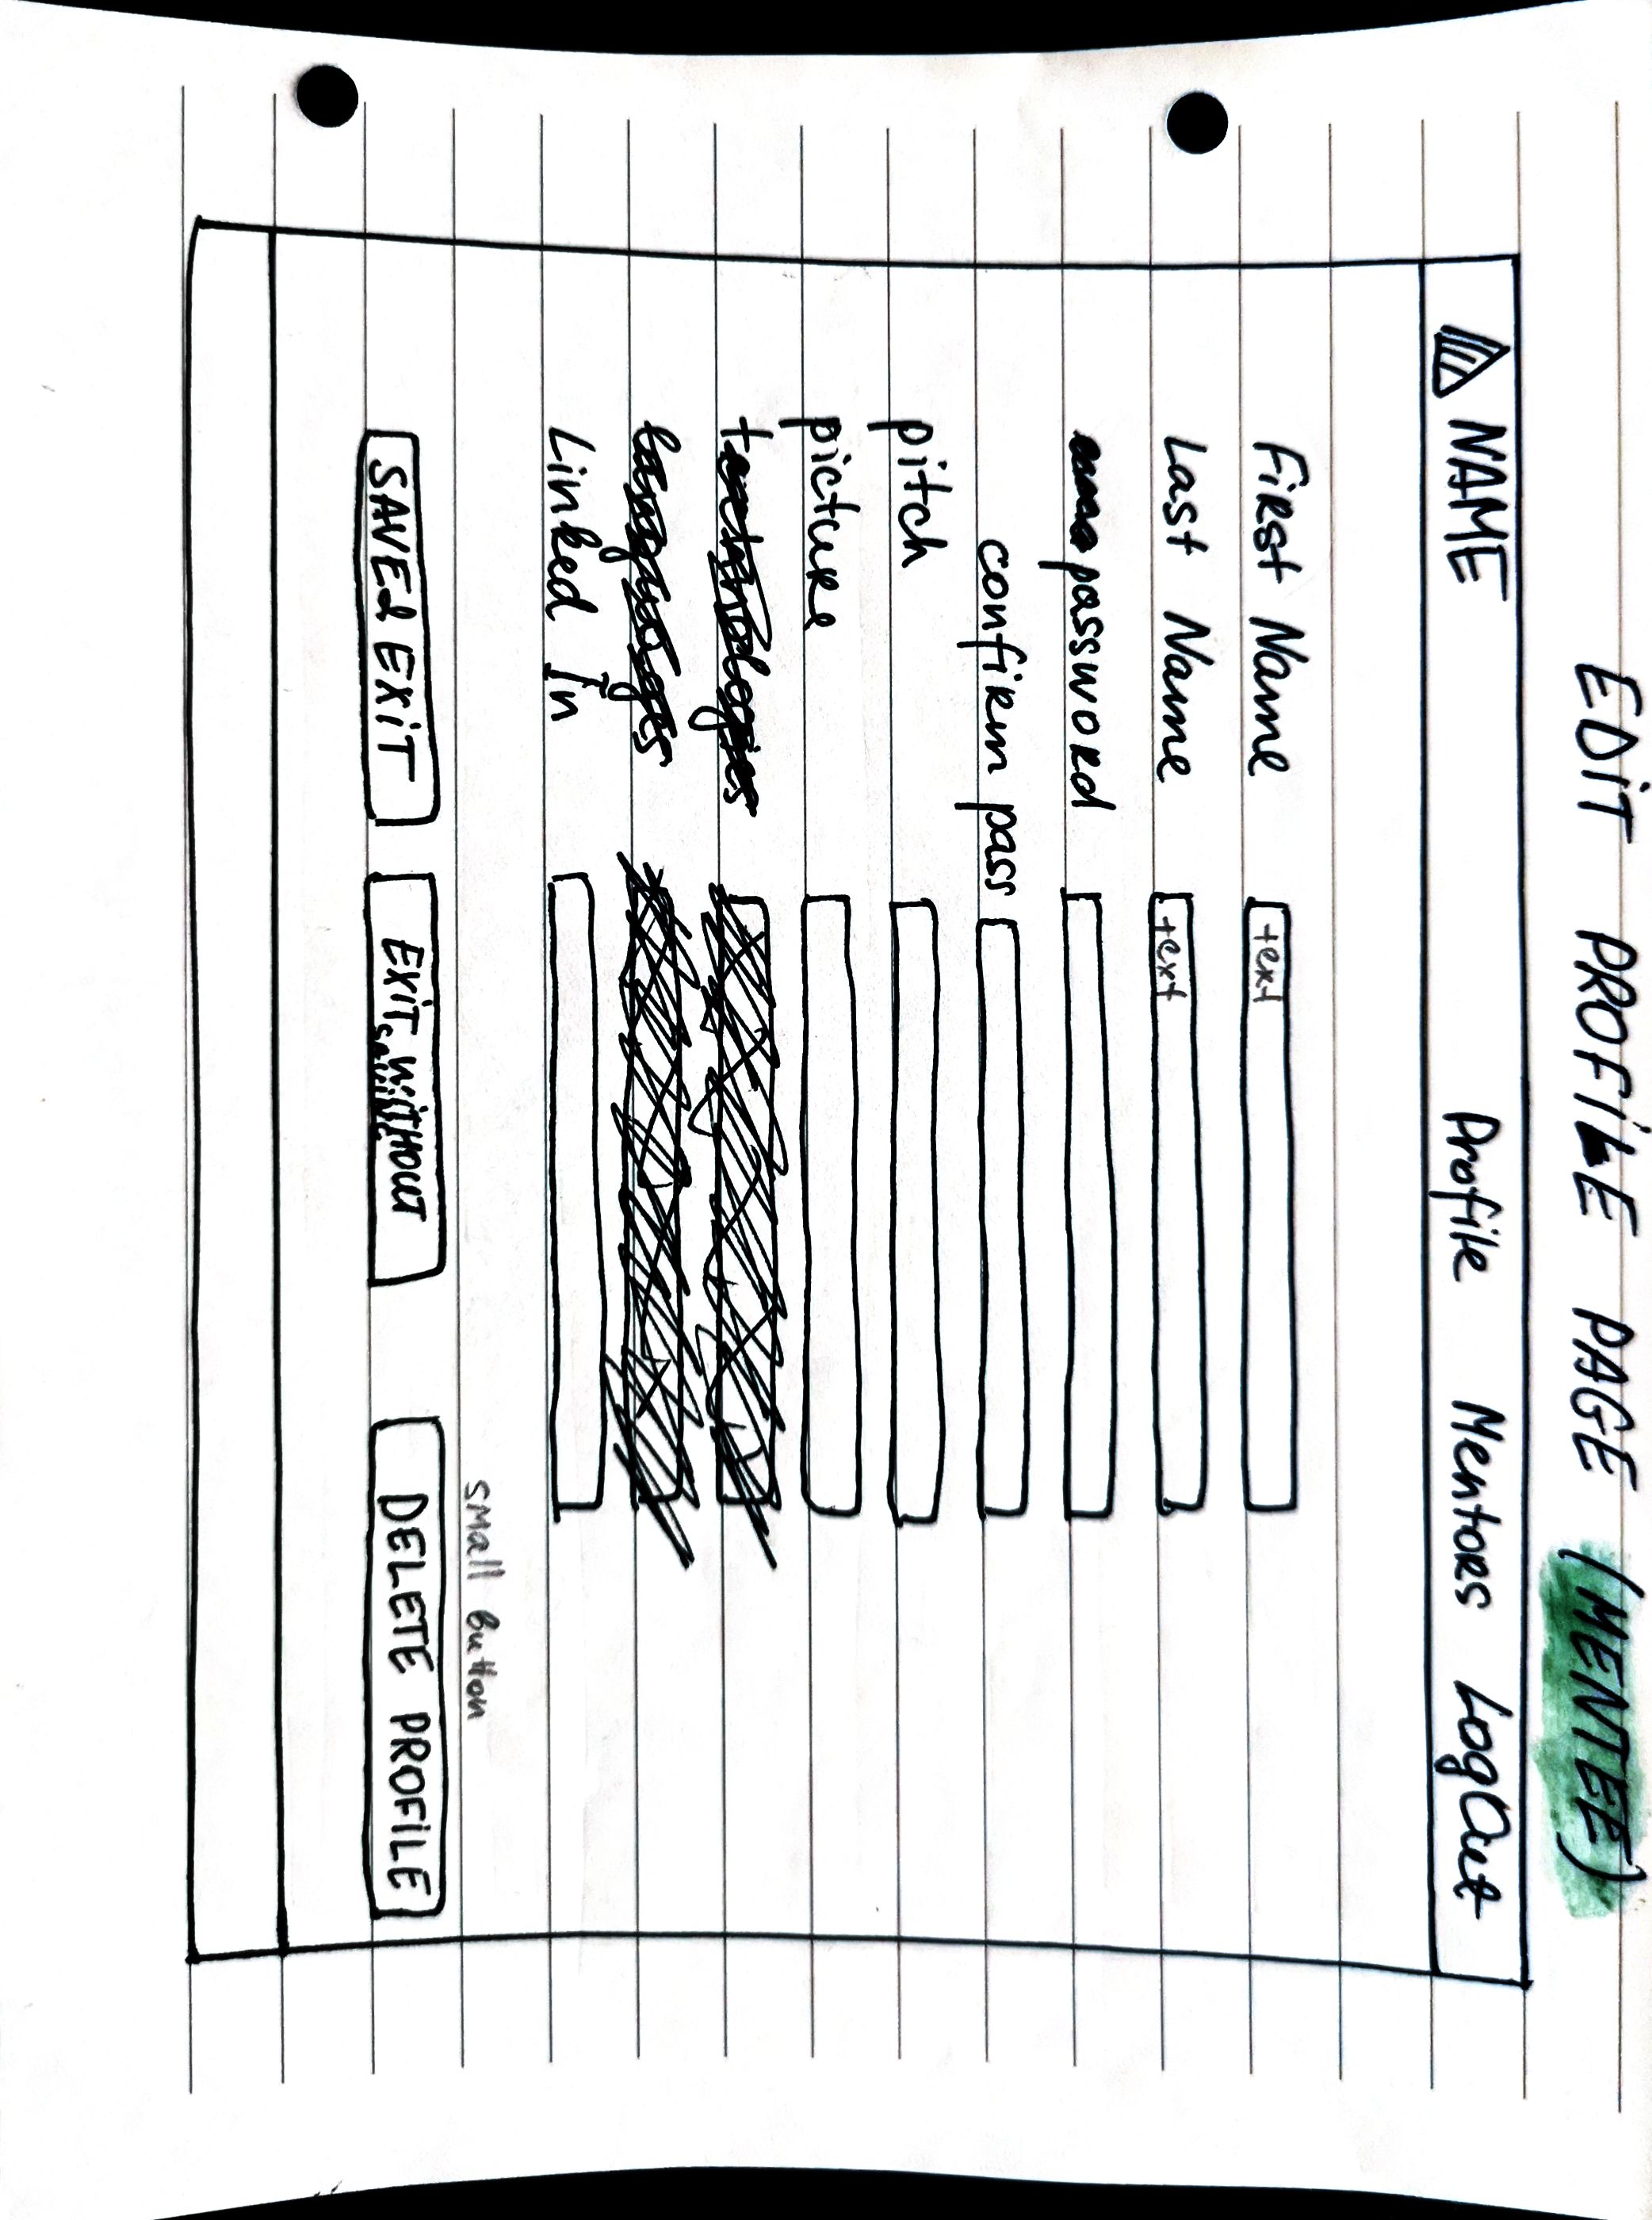 EDIT PROFILE PAGE (MENTEE)
NAME Profile Mentors LogOut
First Name text
Last Name text
password
confirm pass
pitch
picture
technologies
languages
Linked In
small button
SAVE & EXIT EXIT WITHOUT SAVING DELETE PROFILE